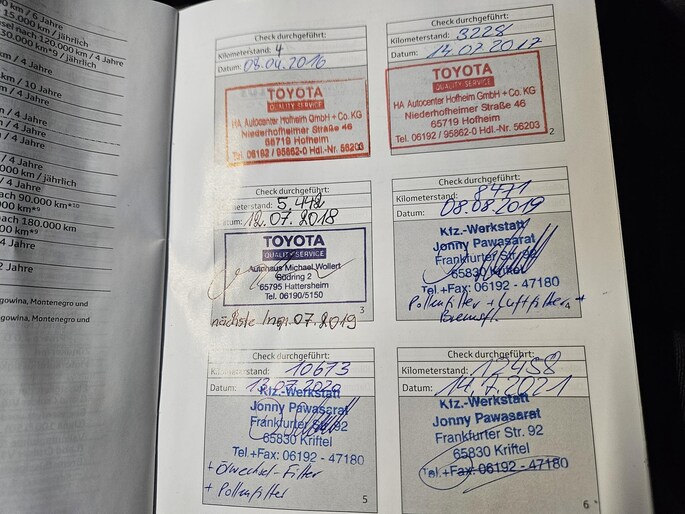 km / 6 Jahre
15.000 km / jährlich
nach 120.000 km / 4 Jahre
30.000 km*9 / jährlich
km / 4 Jahre
km / 10 Jahre
/ 4 Jahre
/ 4 Jahre
/ 4 Jahre
/ 4 Jahre
km / jährlich
/ 4 Jahre
nach 90.000 km*10
000 km*9
nach 180.000 km
km*9
4 Jahre
2 Jahre
gowina, Montenegro und
gowina, Montenegro und
Check durchgeführt:
Kilometerstand: 4
Datum: 08.04.2016
TOYOTA
QUALITY SERVICE
HA Autocenter Hofheim GmbH + Co. KG
Niederhofheimer Straße 46
65719 Hofheim
Tel. 06192 / 95862-0 Hdl.-Nr. 56203
Check durchgeführt:
Kilometerstand: 3228
Datum: 14.02.2017
TOYOTA
QUALITY SERVICE
HA Autocenter Hofheim GmbH + Co. KG
Niederhofheimer Straße 46
65719 Hofheim
Tel. 06192 / 95862-0 Hdl.-Nr. 56203
2
Check durchgeführt:
meterstand: 5,442
um: 12.07.2018
TOYOTA
QUALITY SERVICE
Autohaus Michael Wollert
Südring 2
65795 Hattersheim
Tel. 06190/5150
3
nächste Insp. 07.2019
Check durchgeführt:
Kilometerstand: 8471
Datum: 08.08.2019
Kfz.-Werkstatt
Jonny Pawasarat
Frankfurter Str. 92
65830 Kriftel
Tel.+Fax: 06192 - 47180
Pollenfilter + Luftfilter +
4
Bremsfl.
Check durchgeführt:
Kilometerstand: 10673
Datum: 13.07.2020
Kfz.-Werkstatt
Jonny Pawasarat
Frankfurter Str. 92
65830 Kriftel
Tel.+Fax: 06192 - 47180
+ Ölwechsel-Filter
+ Pollenfilter
5
Check durchgeführt:
Kilometerstand: 12458
Datum: 14.7.2021
Kfz.-Werkstatt
Jonny Pawasarat
Frankfurter Str. 92
65830 Kriftel
Tel.+Fax: 06192 - 47180
6